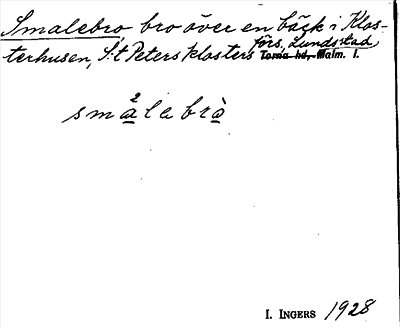 Smalebro bro över en bäck i Klos-
terhusen, S:t Peters klosters förs. Lunds stad,
Torna hd, Malm. l.
små̀lebrò
I. INGERS 1928